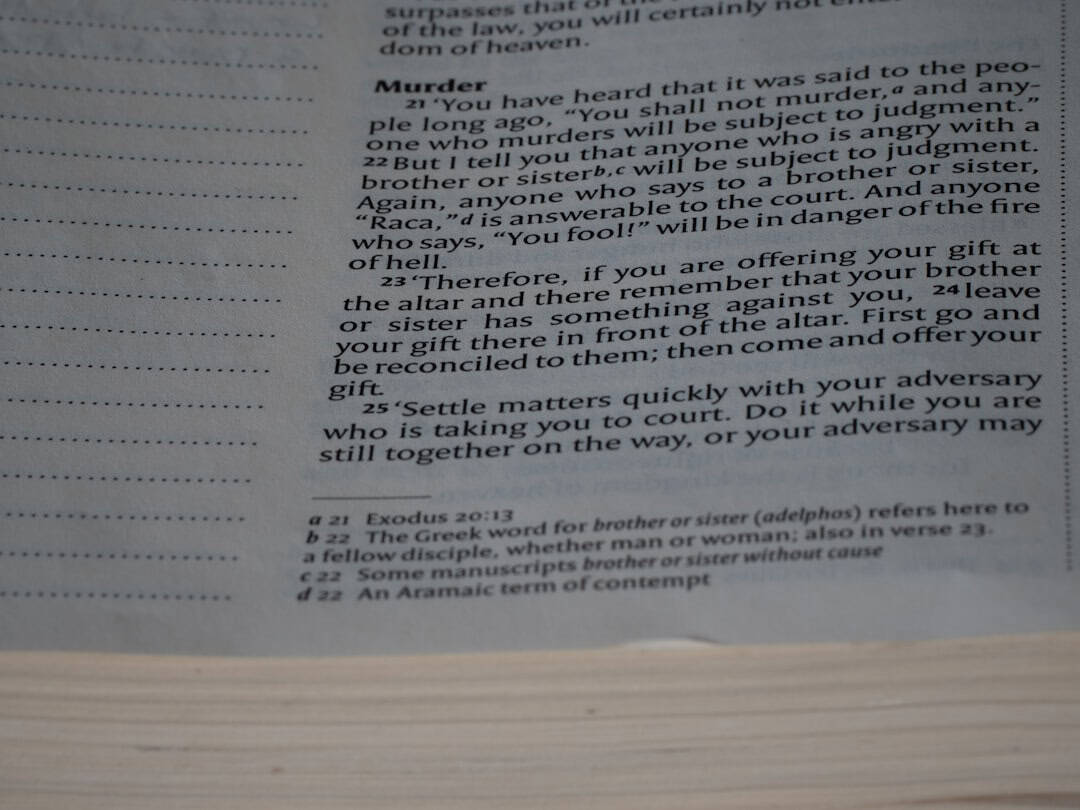 surpasses that of the
of the law, you will certainly not ente
dom of heaven.
Murder
21 ‘You have heard that it was said to the peo-
ple long ago, “You shall not murder,a and any-
one who murders will be subject to judgment.”
22 But I tell you that anyone who is angry with a
brother or sisterb,c will be subject to judgment.
Again, anyone who says to a brother or sister,
“Raca,”d is answerable to the court. And anyone
who says, “You fool!” will be in danger of the fire
of hell.
23 ‘Therefore, if you are offering your gift at
the altar and there remember that your brother
or sister has something against you, 24 leave
your gift there in front of the altar. First go and
be reconciled to them; then come and offer your
gift.
25 ‘Settle matters quickly with your adversary
who is taking you to court. Do it while you are
still together on the way, or your adversary may
a 21 Exodus 20:13
b 22 The Greek word for brother or sister (adelphos) refers here to
a fellow disciple, whether man or woman; also in verse 23.
c 22 Some manuscripts brother or sister without cause
d 22 An Aramaic term of contempt